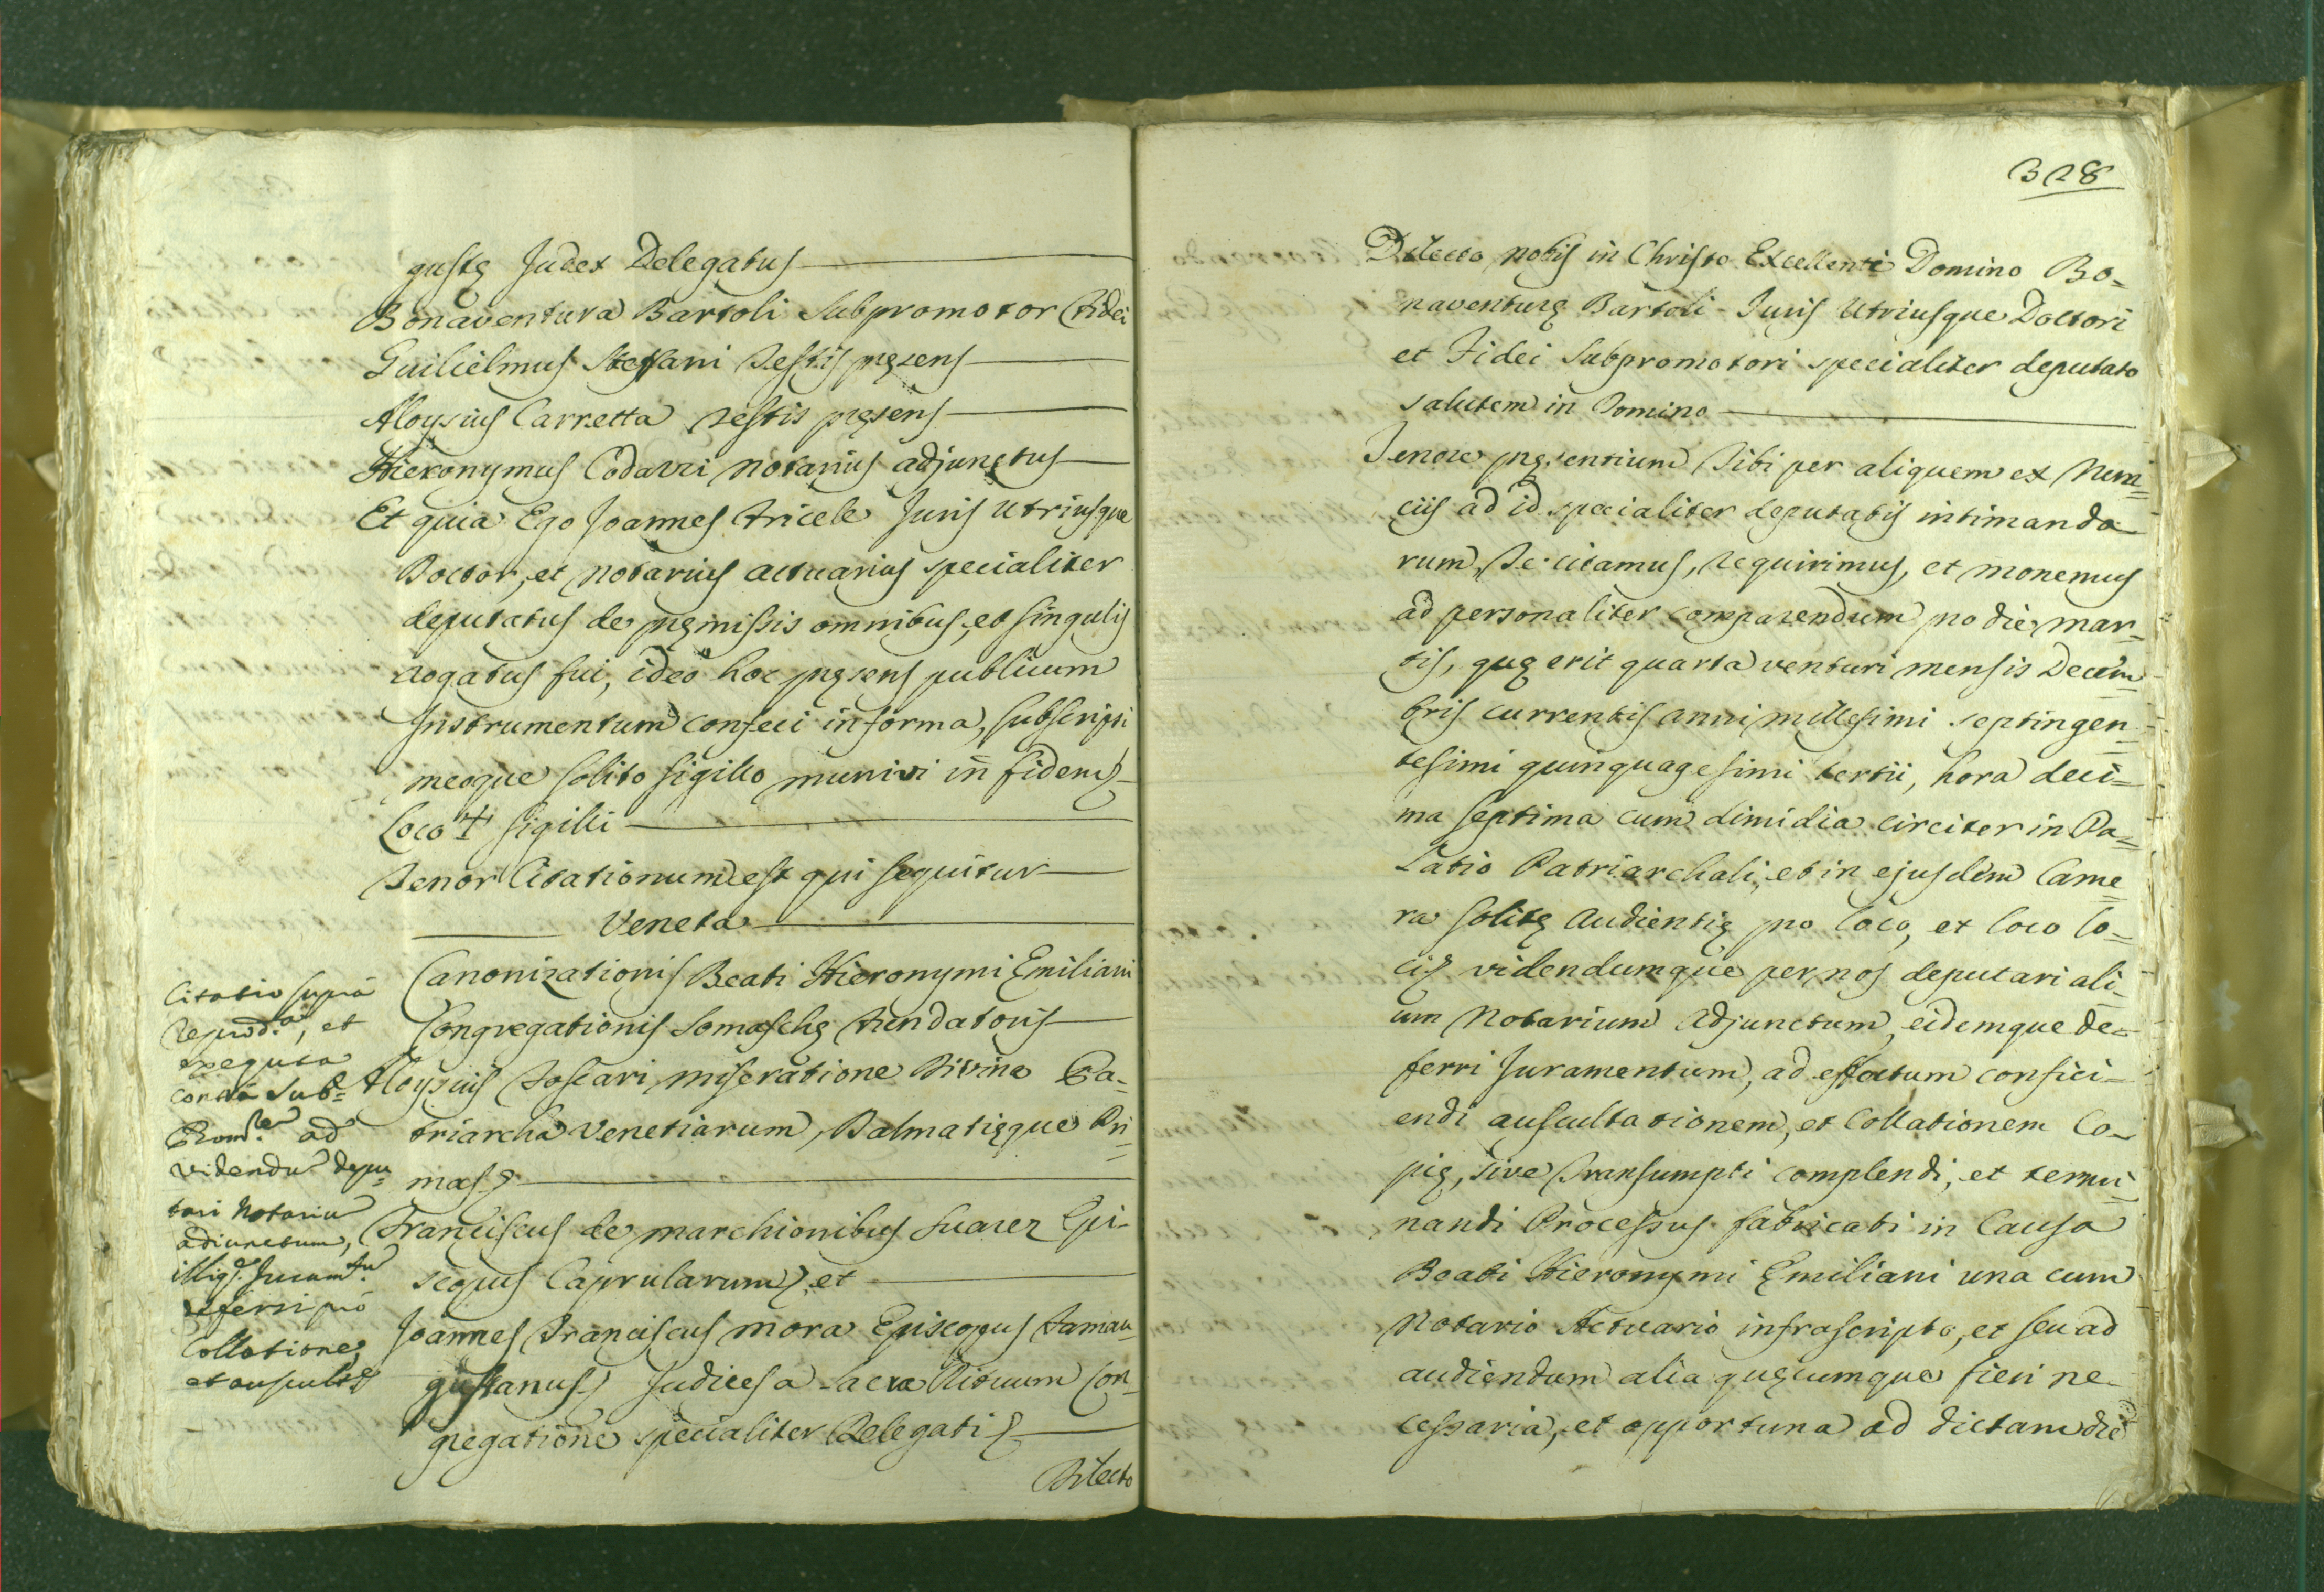 gustę Judex Delegatus
Bonaventura Bartoli Subpromotor Fidei
Guilielmus Steffani Testis pręsens
Aloysius Carretta Testis pręsens
Hieronymus Codavri Notarius adjunctus
Et quia Ego Joannes Fricele Juris Utriusque
Doctor, et Notarius Actuarius specialiter
deputatus de pręmissis omnibus, et singulis
rogatus fui, ideo hoc pręsens publicum
Instrumentum confeci in forma, subscripsi
meoque solito sigillo munivi in fidem
Loco + sigilli
Tenor Citationum est qui sequitur
Veneta
Canonizationis Beati Hieronymi Emiliani
Congregationis Somaschę Fundatoris
Aloysius Foscari miseratione Divina Pa-
triarcha Venetiarum, Dalmatięque Pri=
mas
Franciscus de Marchionibus Suarez Epi-
scopus Caprularum, et
Joannes Franciscus Mora Episcopus Famau=
gustanus Judices a Sacra Rituum Con=
gregatione specialiter Delegati
Dilecto
Citatio supra
reprod.a, et
exequta
contra Sub=
Prom.re ad
videndū depu=
tari Notariū
adiunctum,
illiq. Juram.tū
deferri pro
Collatione,
et auscult.e
328
Dilecto nobis in Christo Excellenti Domino Bo-
naventurę Bartoli Juris Utriusque Doctori
et Fidei Subpromotori specialiter deputato
salutem in Domino
Tenore pręsentium Tibi per aliquem ex Nun=
ciis ad id specialiter deputatis intimanda
rum, Te citamus, requirimus, et monemus
ad personaliter comparendum pro die mar-
tis, quę erit quarta venturi mensis Decem=
bris currentis anni millesimi septingen=
tesimi quinquagesimi tertii, hora deci=
ma septima cum dimidia circiter in Pa=
latio Patriarchali, et in ejusdem Came=
ra solitę Audientię pro loco, et loco lo=
ci, videndumque per nos deputari ali-
um Notarium Adjunctum, eidemque de-
ferri Juramentum, ad effectum confici-
endi auscultationem, et Collationem Co-
pię, sive Transumpti complendi, et termi=
nandi Processus fabricati in Causa
Beati Hieronymi Emiliani una cum
Notario Actuario infrascripto, et seu ad
audiendum alia quęcumque fieri ne-
cessaria, et opportuna ad dictam diē